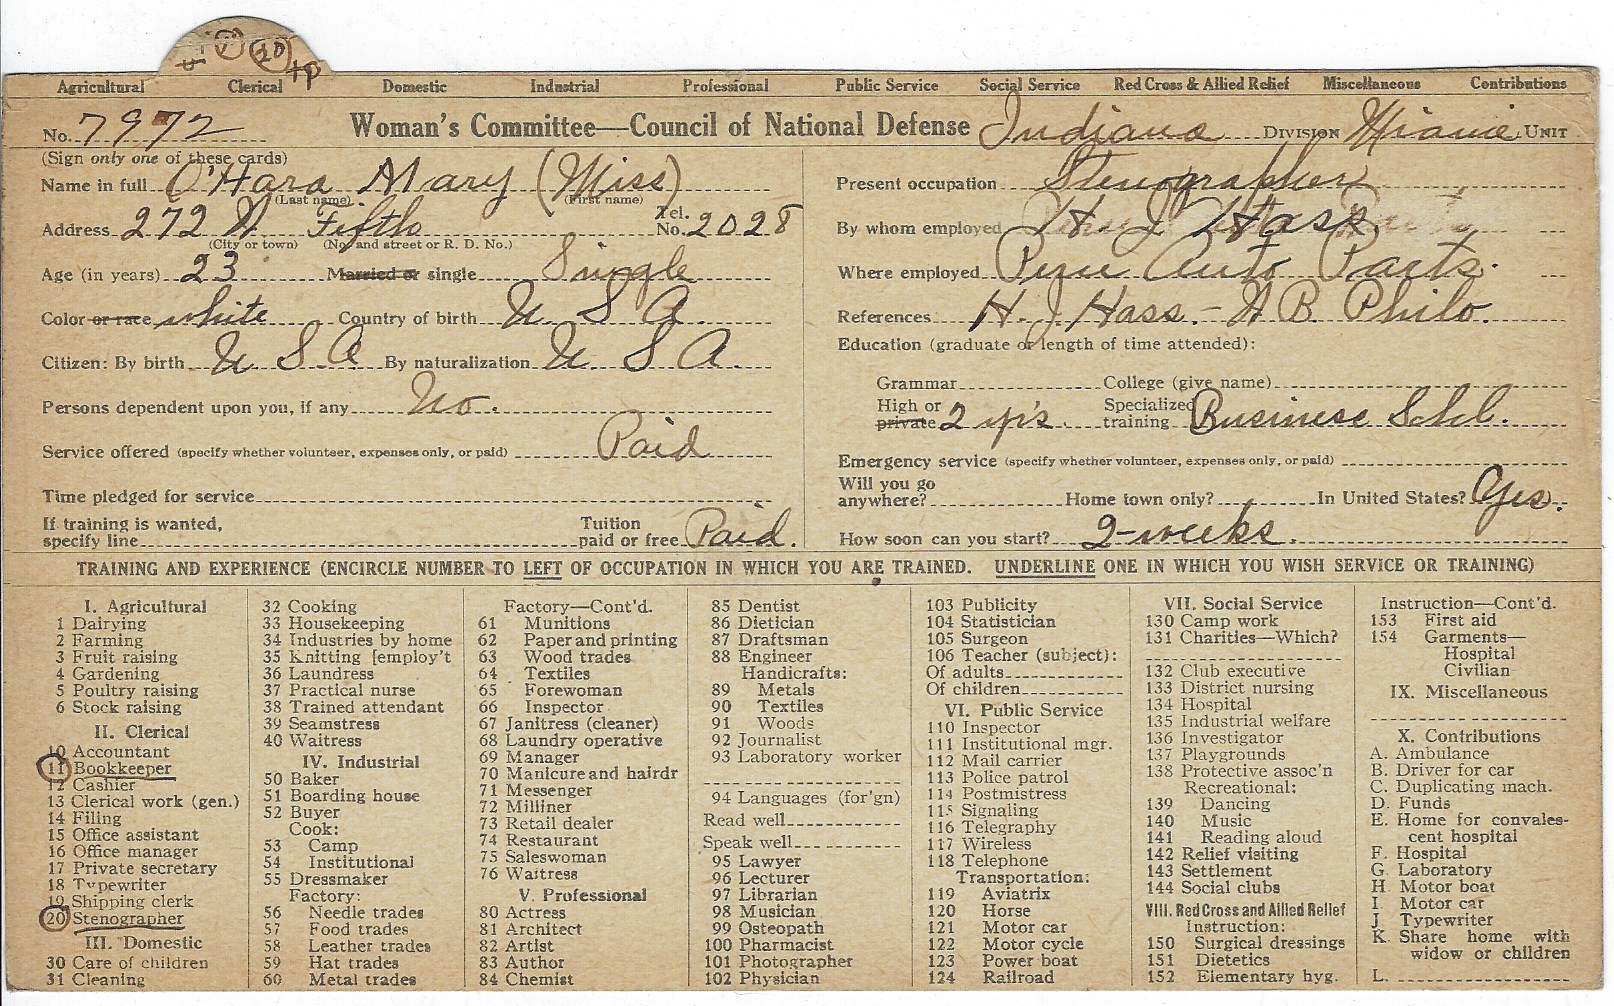 11 20 TP
Agricultural Clerical Domestic Industrial Professional Public Service Social Service Red Cross & Allied Relief Miscellaneous Contributions
No. 7972 Woman's Committee—Council of National Defense Indiana DIVISION Miami UNIT
(Sign only one of these cards)
Name in full O'Hara Mary (Miss)
(Last name) (First name)
Address 272 W Fifth Tel. No. 2028
(City or town) (No. and street or R. D. No.)
Age (in years) 23 Married or single Single
Color or race white Country of birth U. S. A.
Citizen: By birth U S A By naturalization U S A.
Persons dependent upon you, if any No.
Service offered (specify whether volunteer, expenses only, or paid) Paid
Time pledged for service
If training is wanted,
specify line Tuition paid or free Paid.
Present occupation Stenographer
By whom employed H J Hass
Where employed Peru Auto Parts.
References H. J. Hass. - A B. Philo.
Education (graduate or length of time attended):
Grammar College (give name)
High or private 2 yr's. Specialized training Business Schl.
Emergency service (specify whether volunteer, expenses only, or paid)
Will you go anywhere? Home town only? In United States? Yes.
How soon can you start? 2-weeks.
TRAINING AND EXPERIENCE (ENCIRCLE NUMBER TO LEFT OF OCCUPATION IN WHICH YOU ARE TRAINED. UNDERLINE ONE IN WHICH YOU WISH SERVICE OR TRAINING)
I. Agricultural
1 Dairying
2 Farming
3 Fruit raising
4 Gardening
5 Poultry raising
6 Stock raising
II. Clerical
10 Accountant
11 Bookkeeper
12 Cashier
13 Clerical work (gen.)
14 Filing
15 Office assistant
16 Office manager
17 Private secretary
18 Typewriter
19 Shipping clerk
20 Stenographer
III. Domestic
30 Care of children
31 Cleaning
32 Cooking
33 Housekeeping
34 Industries by home
35 Knitting [employ't
36 Laundress
37 Practical nurse
38 Trained attendant
39 Seamstress
40 Waitress
IV. Industrial
50 Baker
51 Boarding house
52 Buyer
Cook:
53 Camp
54 Institutional
55 Dressmaker
Factory:
56 Needle trades
57 Food trades
58 Leather trades
59 Hat trades
60 Metal trades
Factory—Cont'd.
61 Munitions
62 Paper and printing
63 Wood trades
64 Textiles
65 Forewoman
66 Inspector
67 Janitress (cleaner)
68 Laundry operative
69 Manager
70 Manicure and hairdr
71 Messenger
72 Milliner
73 Retail dealer
74 Restaurant
75 Saleswoman
76 Waitress
V. Professional
80 Actress
81 Architect
82 Artist
83 Author
84 Chemist
85 Dentist
86 Dietician
87 Draftsman
88 Engineer
Handicrafts:
89 Metals
90 Textiles
91 Woods
92 Journalist
93 Laboratory worker
94 Languages (for'gn)
Read well
Speak well
95 Lawyer
96 Lecturer
97 Librarian
98 Musician
99 Osteopath
100 Pharmacist
101 Photographer
102 Physician
103 Publicity
104 Statistician
105 Surgeon
106 Teacher (subject):
Of adults
Of children
VI. Public Service
110 Inspector
111 Institutional mgr.
112 Mail carrier
113 Police patrol
114 Postmistress
115 Signaling
116 Telegraphy
117 Wireless
118 Telephone
Transportation:
119 Aviatrix
120 Horse
121 Motor car
122 Motor cycle
123 Power boat
124 Railroad
VII. Social Service
130 Camp work
131 Charities—Which?
132 Club executive
133 District nursing
134 Hospital
135 Industrial welfare
136 Investigator
137 Playgrounds
138 Protective assoc'n
Recreational:
139 Dancing
140 Music
141 Reading aloud
142 Relief visiting
143 Settlement
144 Social clubs
VIII. Red Cross and Allied Relief
Instruction:
150 Surgical dressings
151 Dietetics
152 Elementary hyg.
Instruction—Cont'd.
153 First aid
154 Garments—
Hospital
Civilian
IX. Miscellaneous
X. Contributions
A. Ambulance
B. Driver for car
C. Duplicating mach.
D. Funds
E. Home for convales-
cent hospital
F. Hospital
G. Laboratory
H. Motor boat
I. Motor car
J. Typewriter
K. Share home with
widow or children
L.